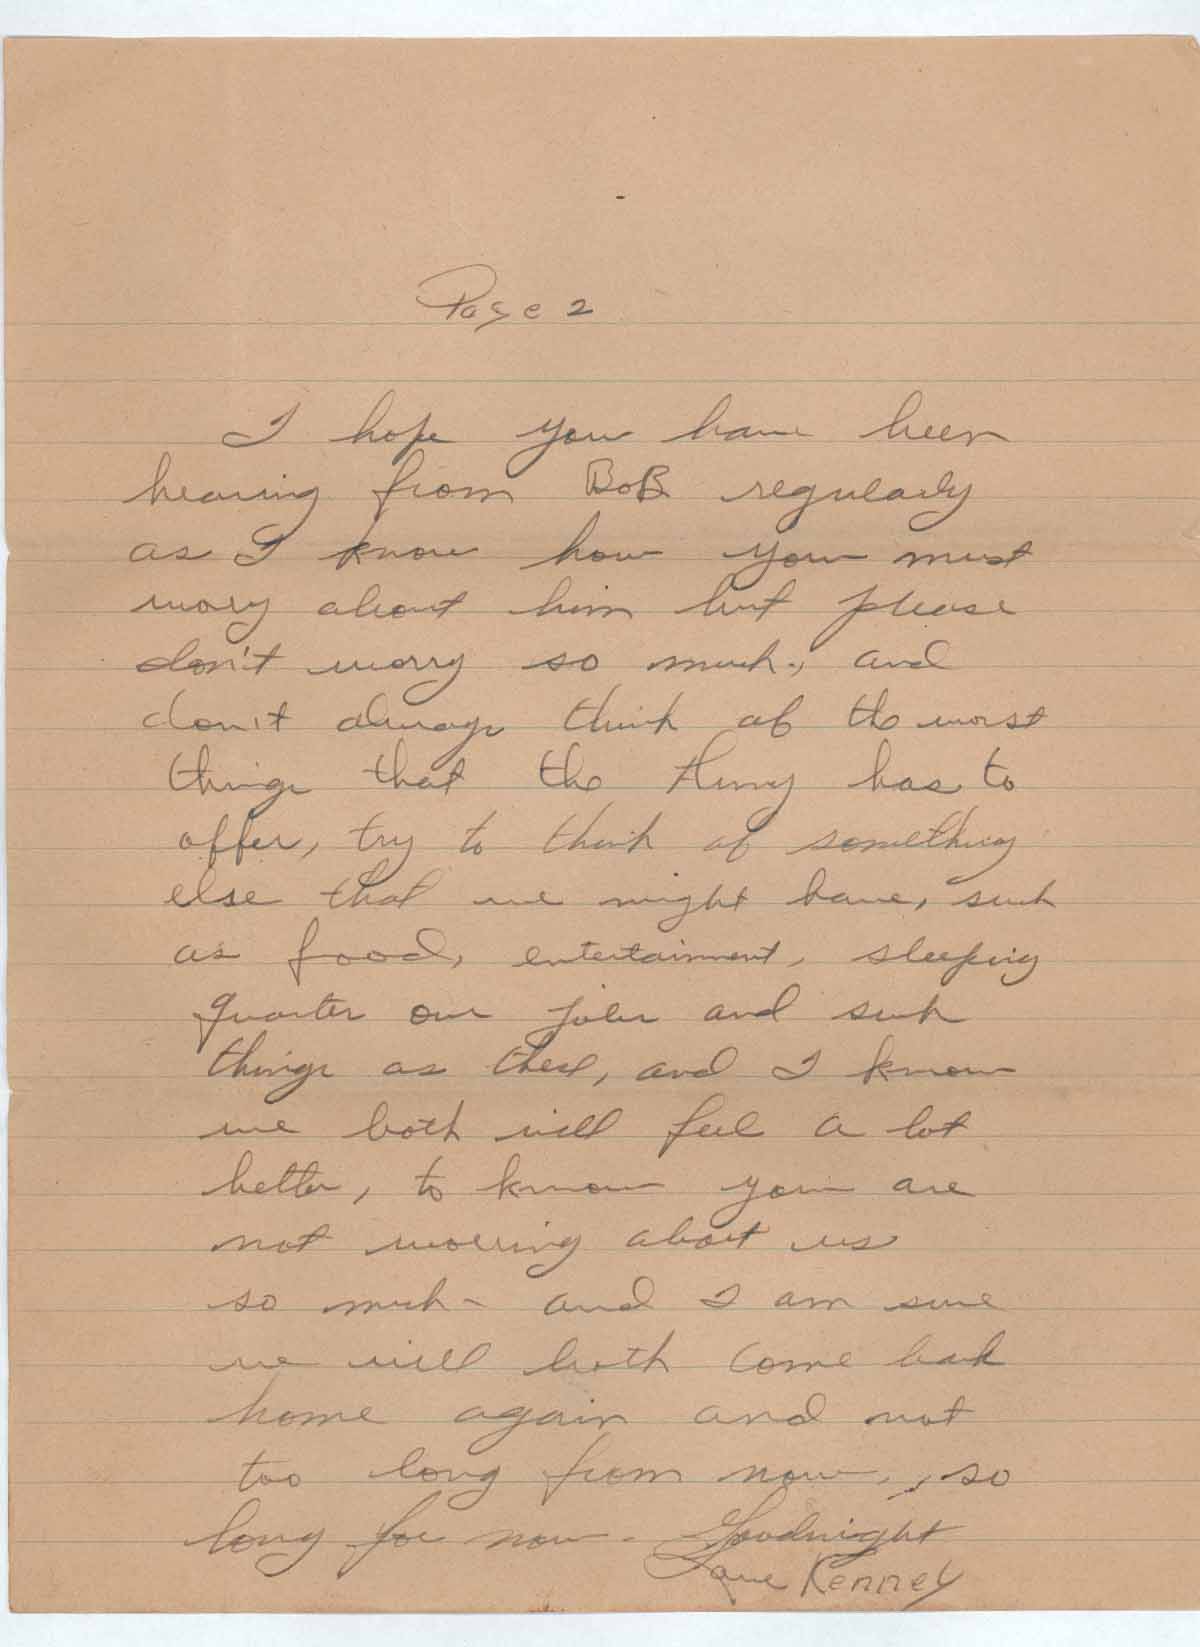 Page 2
I hope you have been
hearing from BoB regularly
as I know how you must
worry about him but please
don't worry so much, and
don't always think of the worst
things that the Army has to
offer, try to think of something
else that we might have, such
as food, entertainment, sleeping
quarter our jobs and such
things as these, and I know
we both will feel a lot
better, to know you are
not worring about us
so much - and I am sure
we will both come back
home again and not
too long from now, so
long for now - Goodnight
Love Kenney